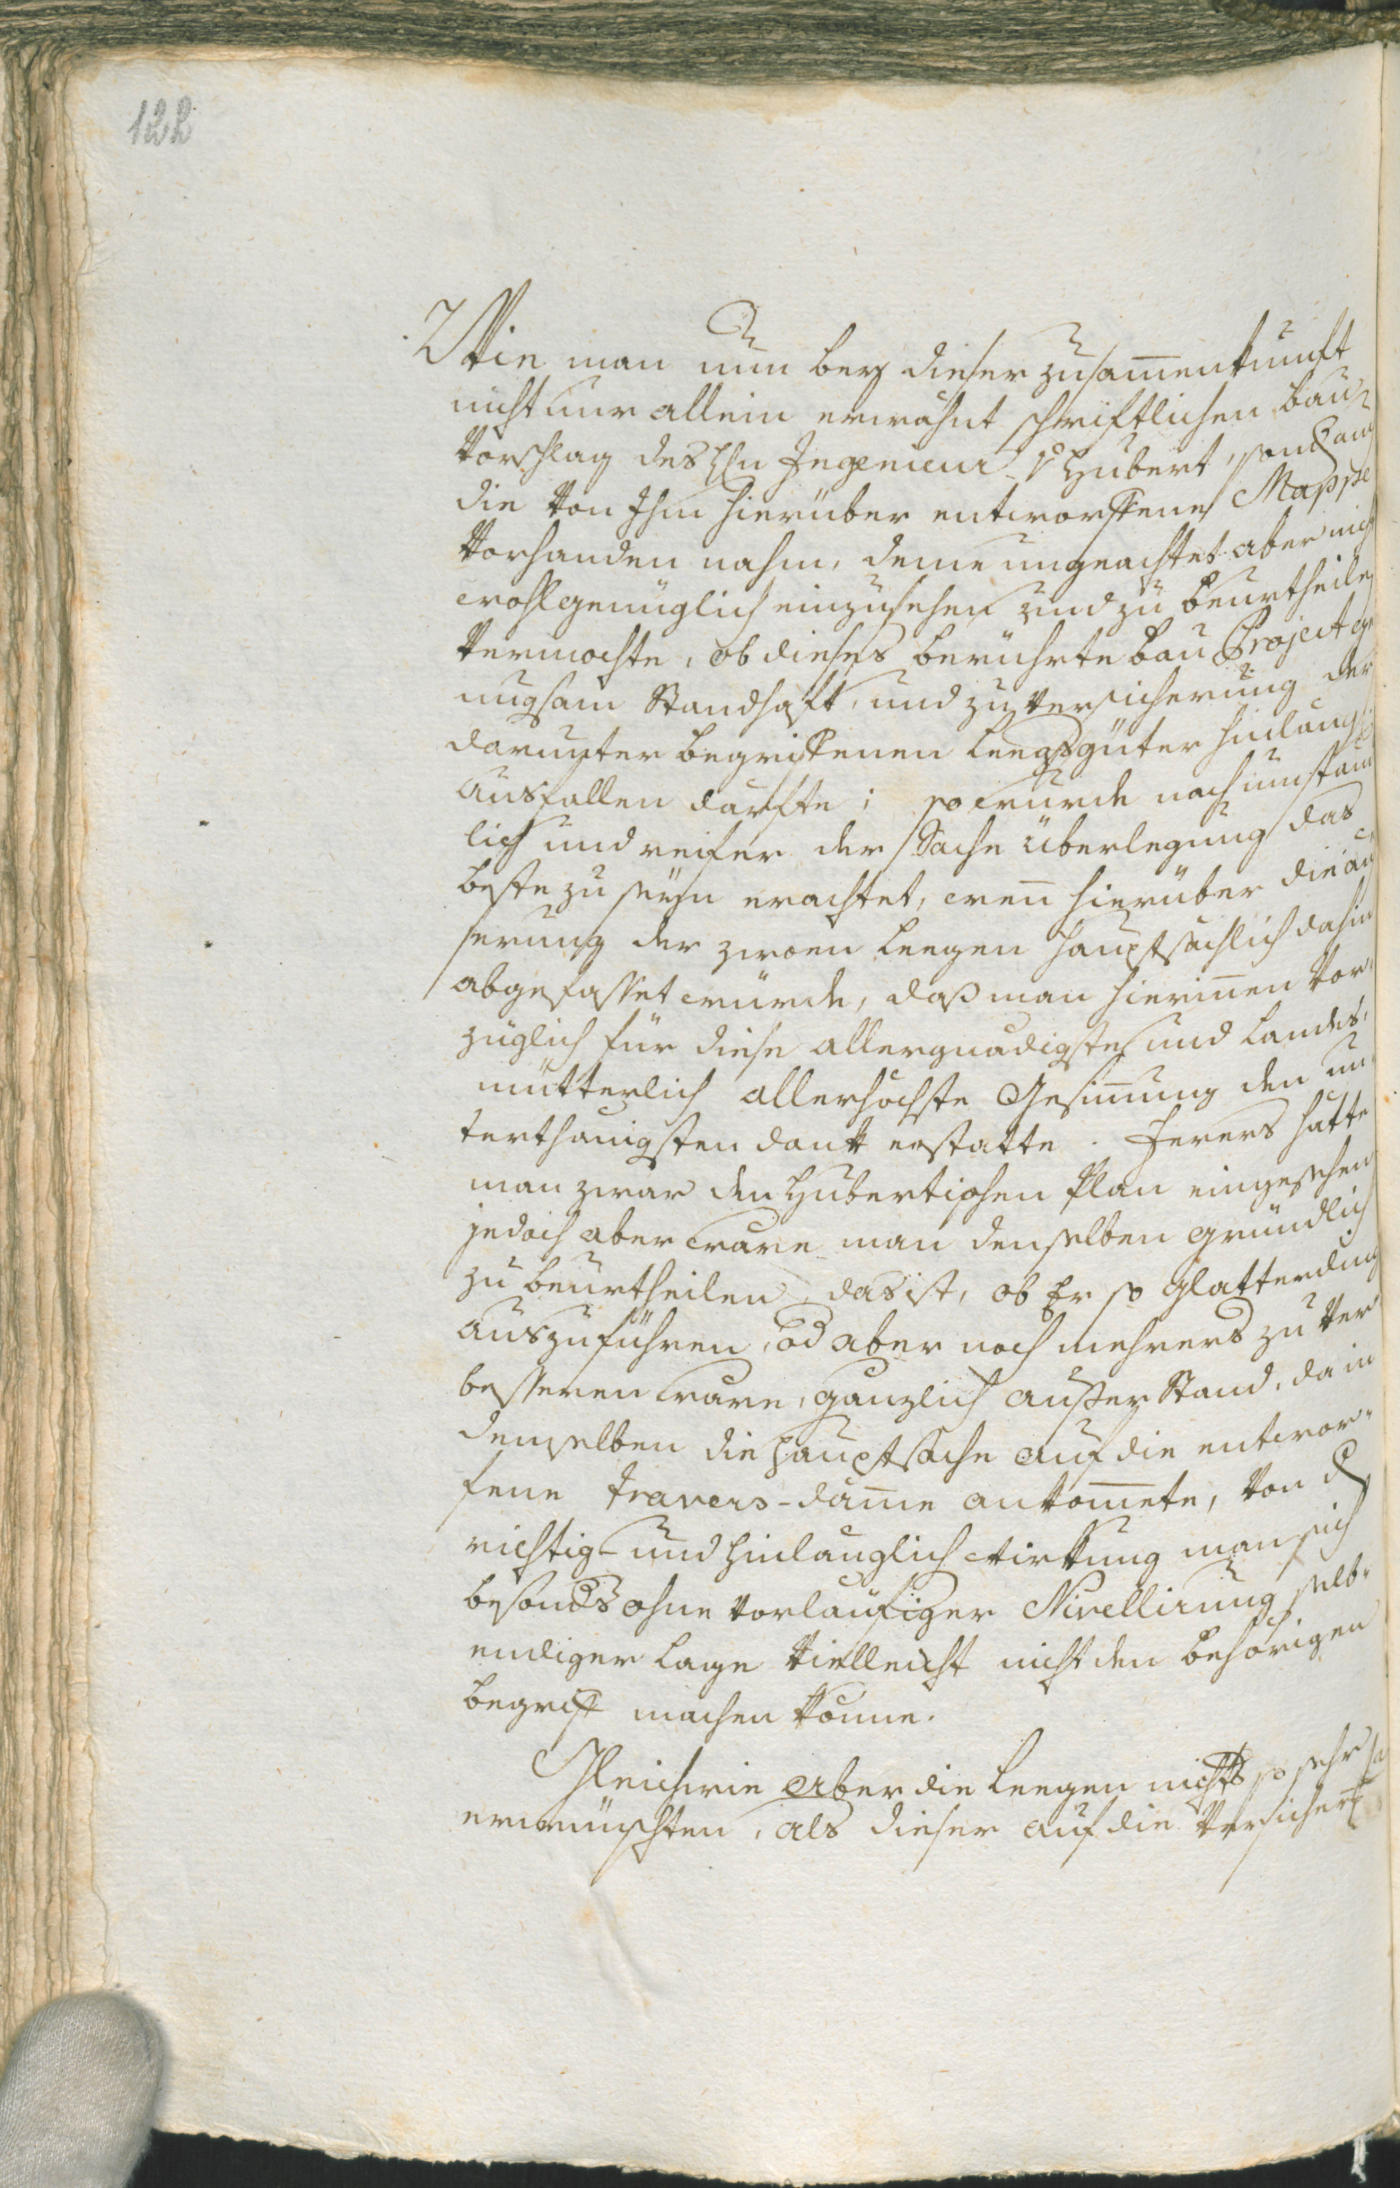 122
Wie man nun bey dieser zusam̅enkunft
nicht nur allein erwähnt schriftlichen bau¬
Vorschlag des Hn Ingenieur v Hubert, sond auch
die von Ihm hierüber entworffene Mappe
Vorhanden nahm, deme ungeachtet aber nicht
wohl genüglich einzusehen und zu beurtheilen
Vermochte, ob dieses berührte bau Project ge
nugsam Standhaft, und zu versicherung der
darunter begriffenen Leegsgüter hinlängl:
ausfallen därfte; so wurde nach umständ
lich und reifer der Sache Überlegung das
beste zu seyn erachtet, wen̅ hierüber die äu
serung der zwoen Leegen hauptsächlich dahin
abgefasset würde, daß man hierin̅en Vor
züglich für diese allergnädigste und Landes
mütterlich allerhöchste Gesin̅ung den un
terthänigsten dank erstatte. Ferers hätte
man zwar den Hubertischen Plan eingesehen
jedoch aber wäre man denselben gründlich
zu beurtheilen, das ist, ob Er so glatterding
auszuführen, od aber noch mehrers zu Ver
besseren wäre, gänzlich ausser Stand, da in
demselben die hauptsache auf die entwor¬
fene Travers-däm̅e ankom̅ete, von d
richtig- und hinlänglich wirkung man sich
besonds ohne vorläufiger Nivellirung selb¬
endiger Lage vielleicht nicht den behörigen
begriff machen könne.
Gleichwie aber die Leegen nichts so sehr
erwünschten, als dieser auf die Versicher